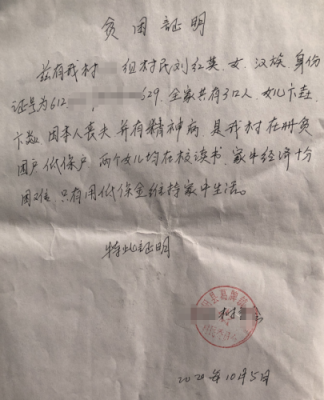 贫困证明
兹有我村 组村民刘红英、女、汉族、身份
证号为612 529.全家共有3口人、女儿卞
卞 因本人丧夫并有精神病、是我村在册贫
困户、低保户、两个女儿均在校读书、家中经济十分
困难、只有用低保金维持家中生活。
特此证明
2020年10月5日